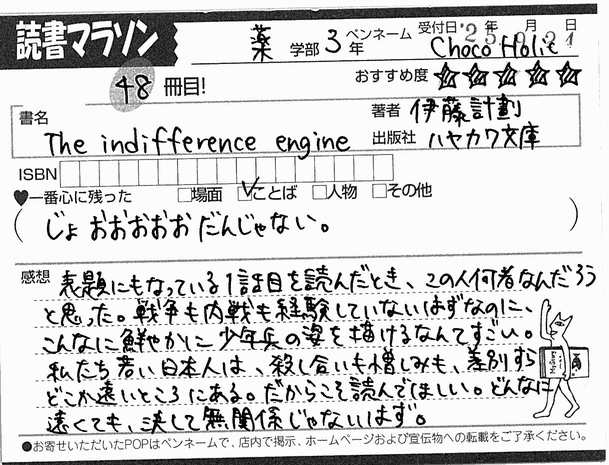 読書マラソン
薬 学部 3年
ペンネーム Choco Holic
受付日 年 月 日
48 冊目!
おすすめ度 ☆☆☆☆☆
書名 The indifference engine
著者 伊藤計劃
出版社 ハヤカワ文庫
ISBN
♥一番心に残った □場面 ☑ことば □人物 □その他
(じょおおおおおだんじゃない。)
感想 表題にもなっている1話目を読んだとき、この人何者なんだろう
と思った。戦争も内戦も経験していないはずなのに、
こんなに鮮やかに少年兵の姿を描けるなんてすごい。
私たち若い日本人は、殺し合いも憎しみも、差別すら
どこか遠いところにある。だからこそ読んでほしい。どんなに
遠くても、決して無関係じゃないはず。
●お寄せいただいたPOPはペンネームで、店内で掲示、ホームページおよび宣伝物への転載をご了承ください。